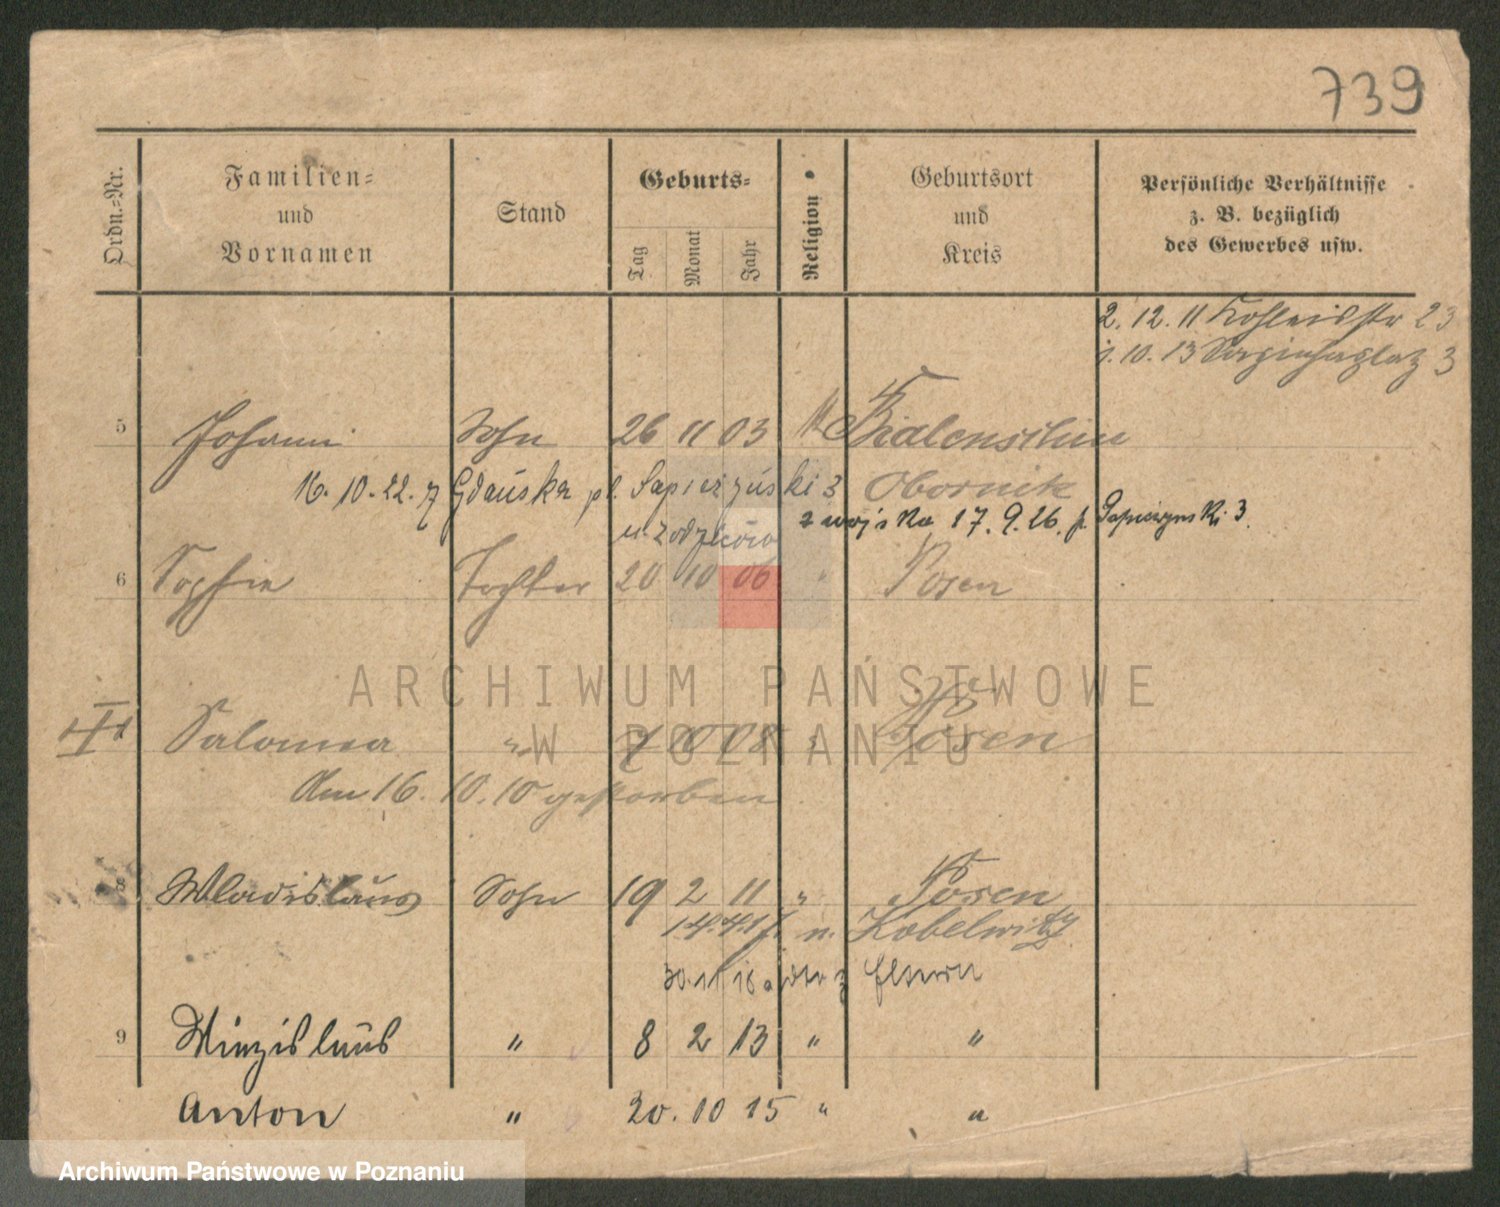 739
Ordn.-Nr.
Familien-
und
Vornamen
Stand
Geburts-
Tag
Monat
Jahr
Religion
Geburtsort
und
Kreis
Persönliche Verhältnisse
z. B. bezüglich
des Gewerbes usw.
2. 12. 11 23
1. 10. 13 Sapiehaplatz 3
5 Johann Sohn 26 11 03
16. 10. 22. z Gdańska pl. Sapieżyński 3 Obornik
z wojska 17. 9. 26. p. Sapieżynski 3.
u rodziców
6 Sophie Tochter 20 10 06 " Posen
Salomea " 10 08 " Posen
Am 16. 10. 10 gestorben
8 Wladislaus Sohn 19 2 11 " Posen
14.4.17. n. Kobelwitz
30.11.18 Eltern
9 Miezislaus " 8 2 13 " "
Anton " 20. 10 15 " "
ARCHIWUM PAŃSTWOWE
W POZNANIU
Archiwum Państwowe w Poznaniu